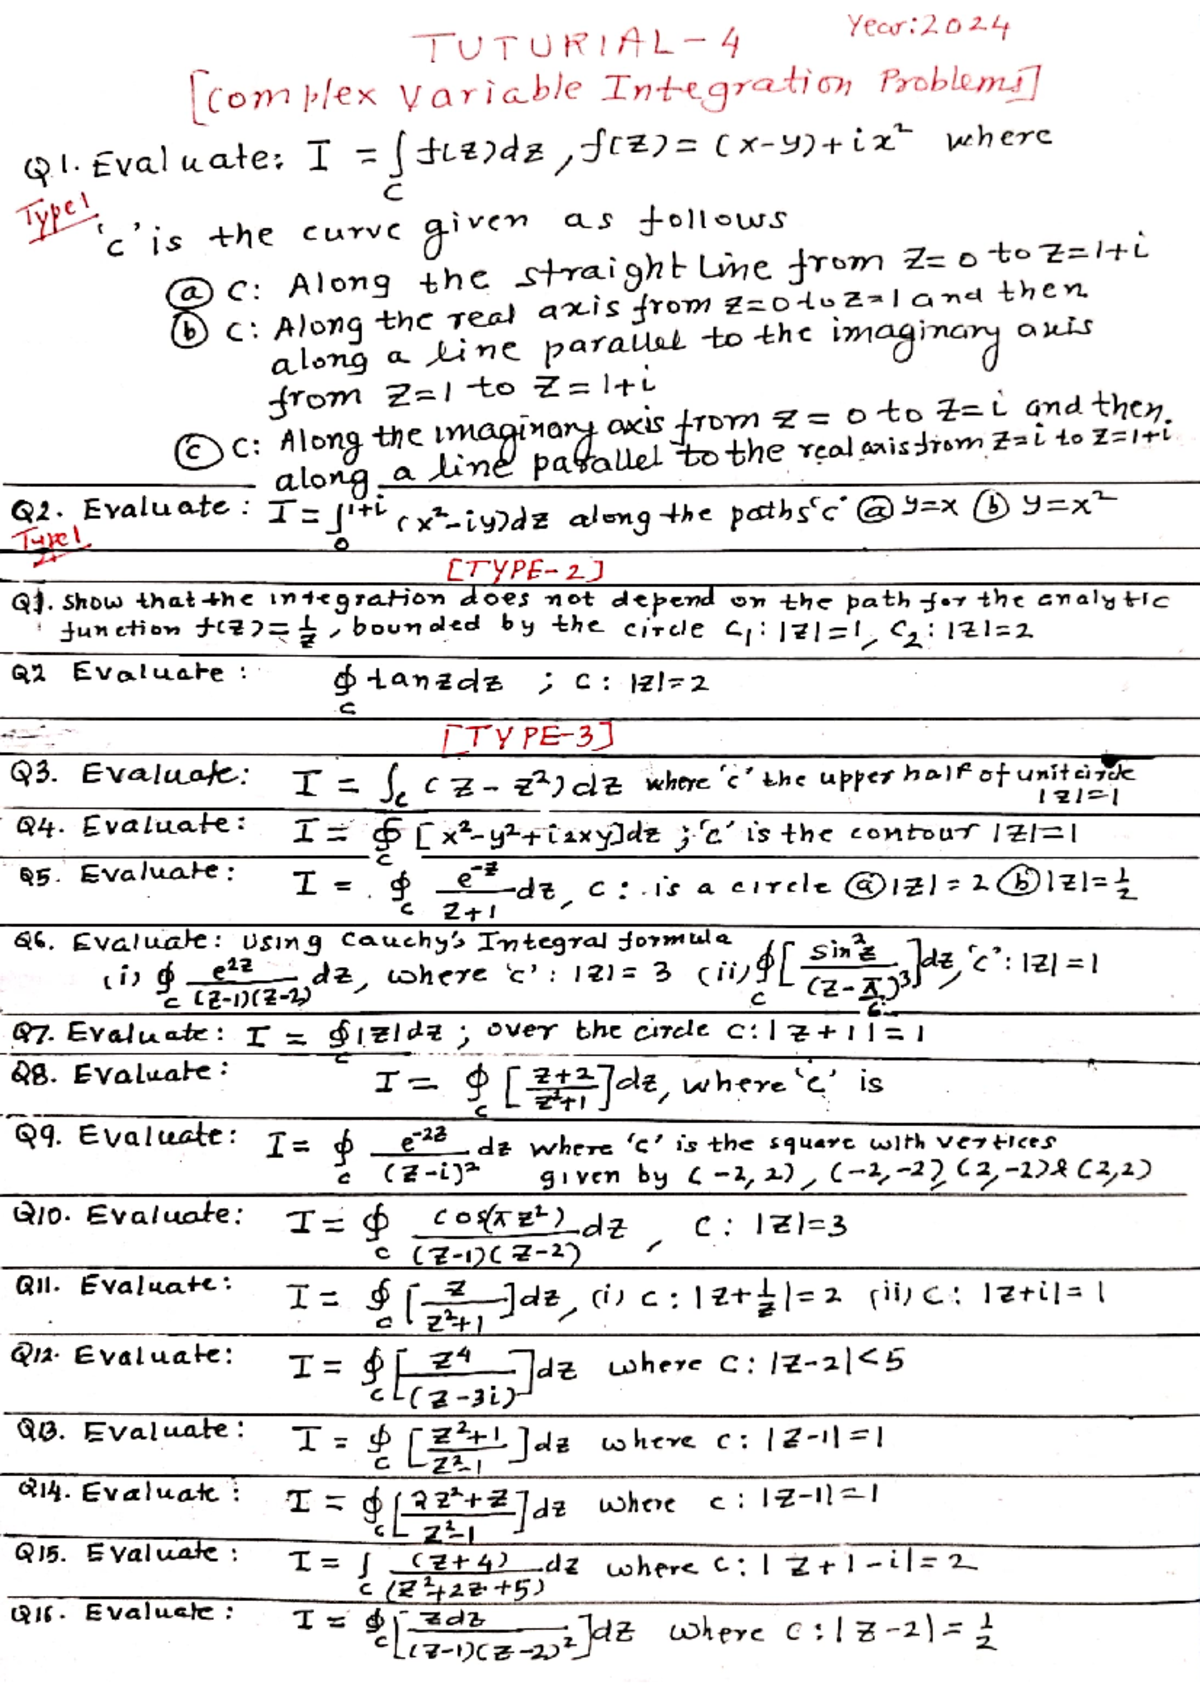 Year: 2024
TUTURIAL-4
[Complex Variable Integration Problems]
Q1. Evaluate: I = ∫_C f(z)dz, f(z) = (x-y)+ix² where
Type 1
'c' is the curve given as follows
ⓐ C: Along the straight Line from z=0 to z=1+i
ⓑ C: Along the real axis from z=0 to z=1 and then
along a line parallel to the imaginary axis
from z=1 to z=1+i
ⓒ C: Along the imaginary axis from z=0 to z=i and then.
along a line parallel to the real axis from z=i to z=1+i
Q2. Evaluate: I = ∫_0^{1+i} (x²-iy)dz along the paths 'c' ⓐ y=x ⓑ y=x²
Type 1
[TYPE-2]
Q1. Show that the integration does not depend on the path for the analytic
function f(z)=1/z, bounded by the circle C₁: |z|=1, C₂: |z|=2
Q2 Evaluate: ∮_C tanzdz ; C: |z|=2
[TYPE-3]
Q3. Evaluate: I = ∫_C (z-z²)dz where 'c' the upper half of unit circle
|z|=1
Q4. Evaluate: I = ∮_C [x²-y²+i2xy]dz ; 'c' is the contour |z|=1
Q5. Evaluate: I = ∮_C e^{-z}/(z+1) dz, C: is a circle ⓐ |z|=2 ⓑ |z|=1/2
Q6. Evaluate: Using Cauchy's Integral formula
(i) ∮_C e^{2z}/((z-1)(z-2)) dz, where 'c': |z|=3 (ii) ∮_C [sin²z/(z-π/6)³]dz, 'c': |z|=1
Q7. Evaluate: I = ∮_C |z|dz ; over the circle C: |z+1|=1
Q8. Evaluate: I = ∮_C [(z+2)/(z²+1)]dz, where 'c' is
Q9. Evaluate: I = ∮_C e^{-2z}/(z-i)² dz where 'c' is the square with vertices
given by (-2,2), (-2,-2), (2,-2) & (2,2)
Q10. Evaluate: I = ∮_C cos(πz²)/((z-1)(z-2)) dz, C: |z|=3
Q11. Evaluate: I = ∮_C [z/(z²+1)]dz, (i) C: |z+1/z|=2 (ii) C: |z+i|=1
Q12. Evaluate: I = ∮_C [z⁴/(z-3i)]dz where C: |z-2|<5
Q13. Evaluate: I = ∮_C [(z²+1)/(z²-1)]dz where C: |z-1|=1
Q14. Evaluate: I = ∮_C [(2z²+z)/(z²-1)]dz where C: |z-1|=1
Q15. Evaluate: I = ∫_C (z+4)/(z²+2z+5) dz where C: |z+1-i|=2
Q16. Evaluate: I = ∮_C [zdz/((z-1)(z-2)²)]dz where C: |z-2|=1/2